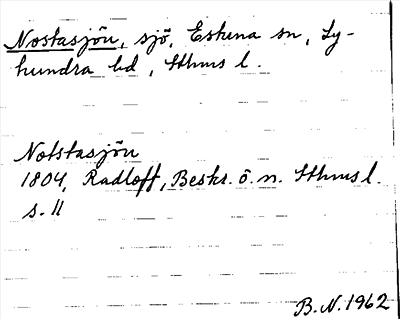 Nostasjön, sjö, Eskena sn, Ly-
hundra hd, Sthms l.
Notstasjön
1804, Radloff, Beskr. ö. n. Sthmsl.
s. 11
B.N. 1962